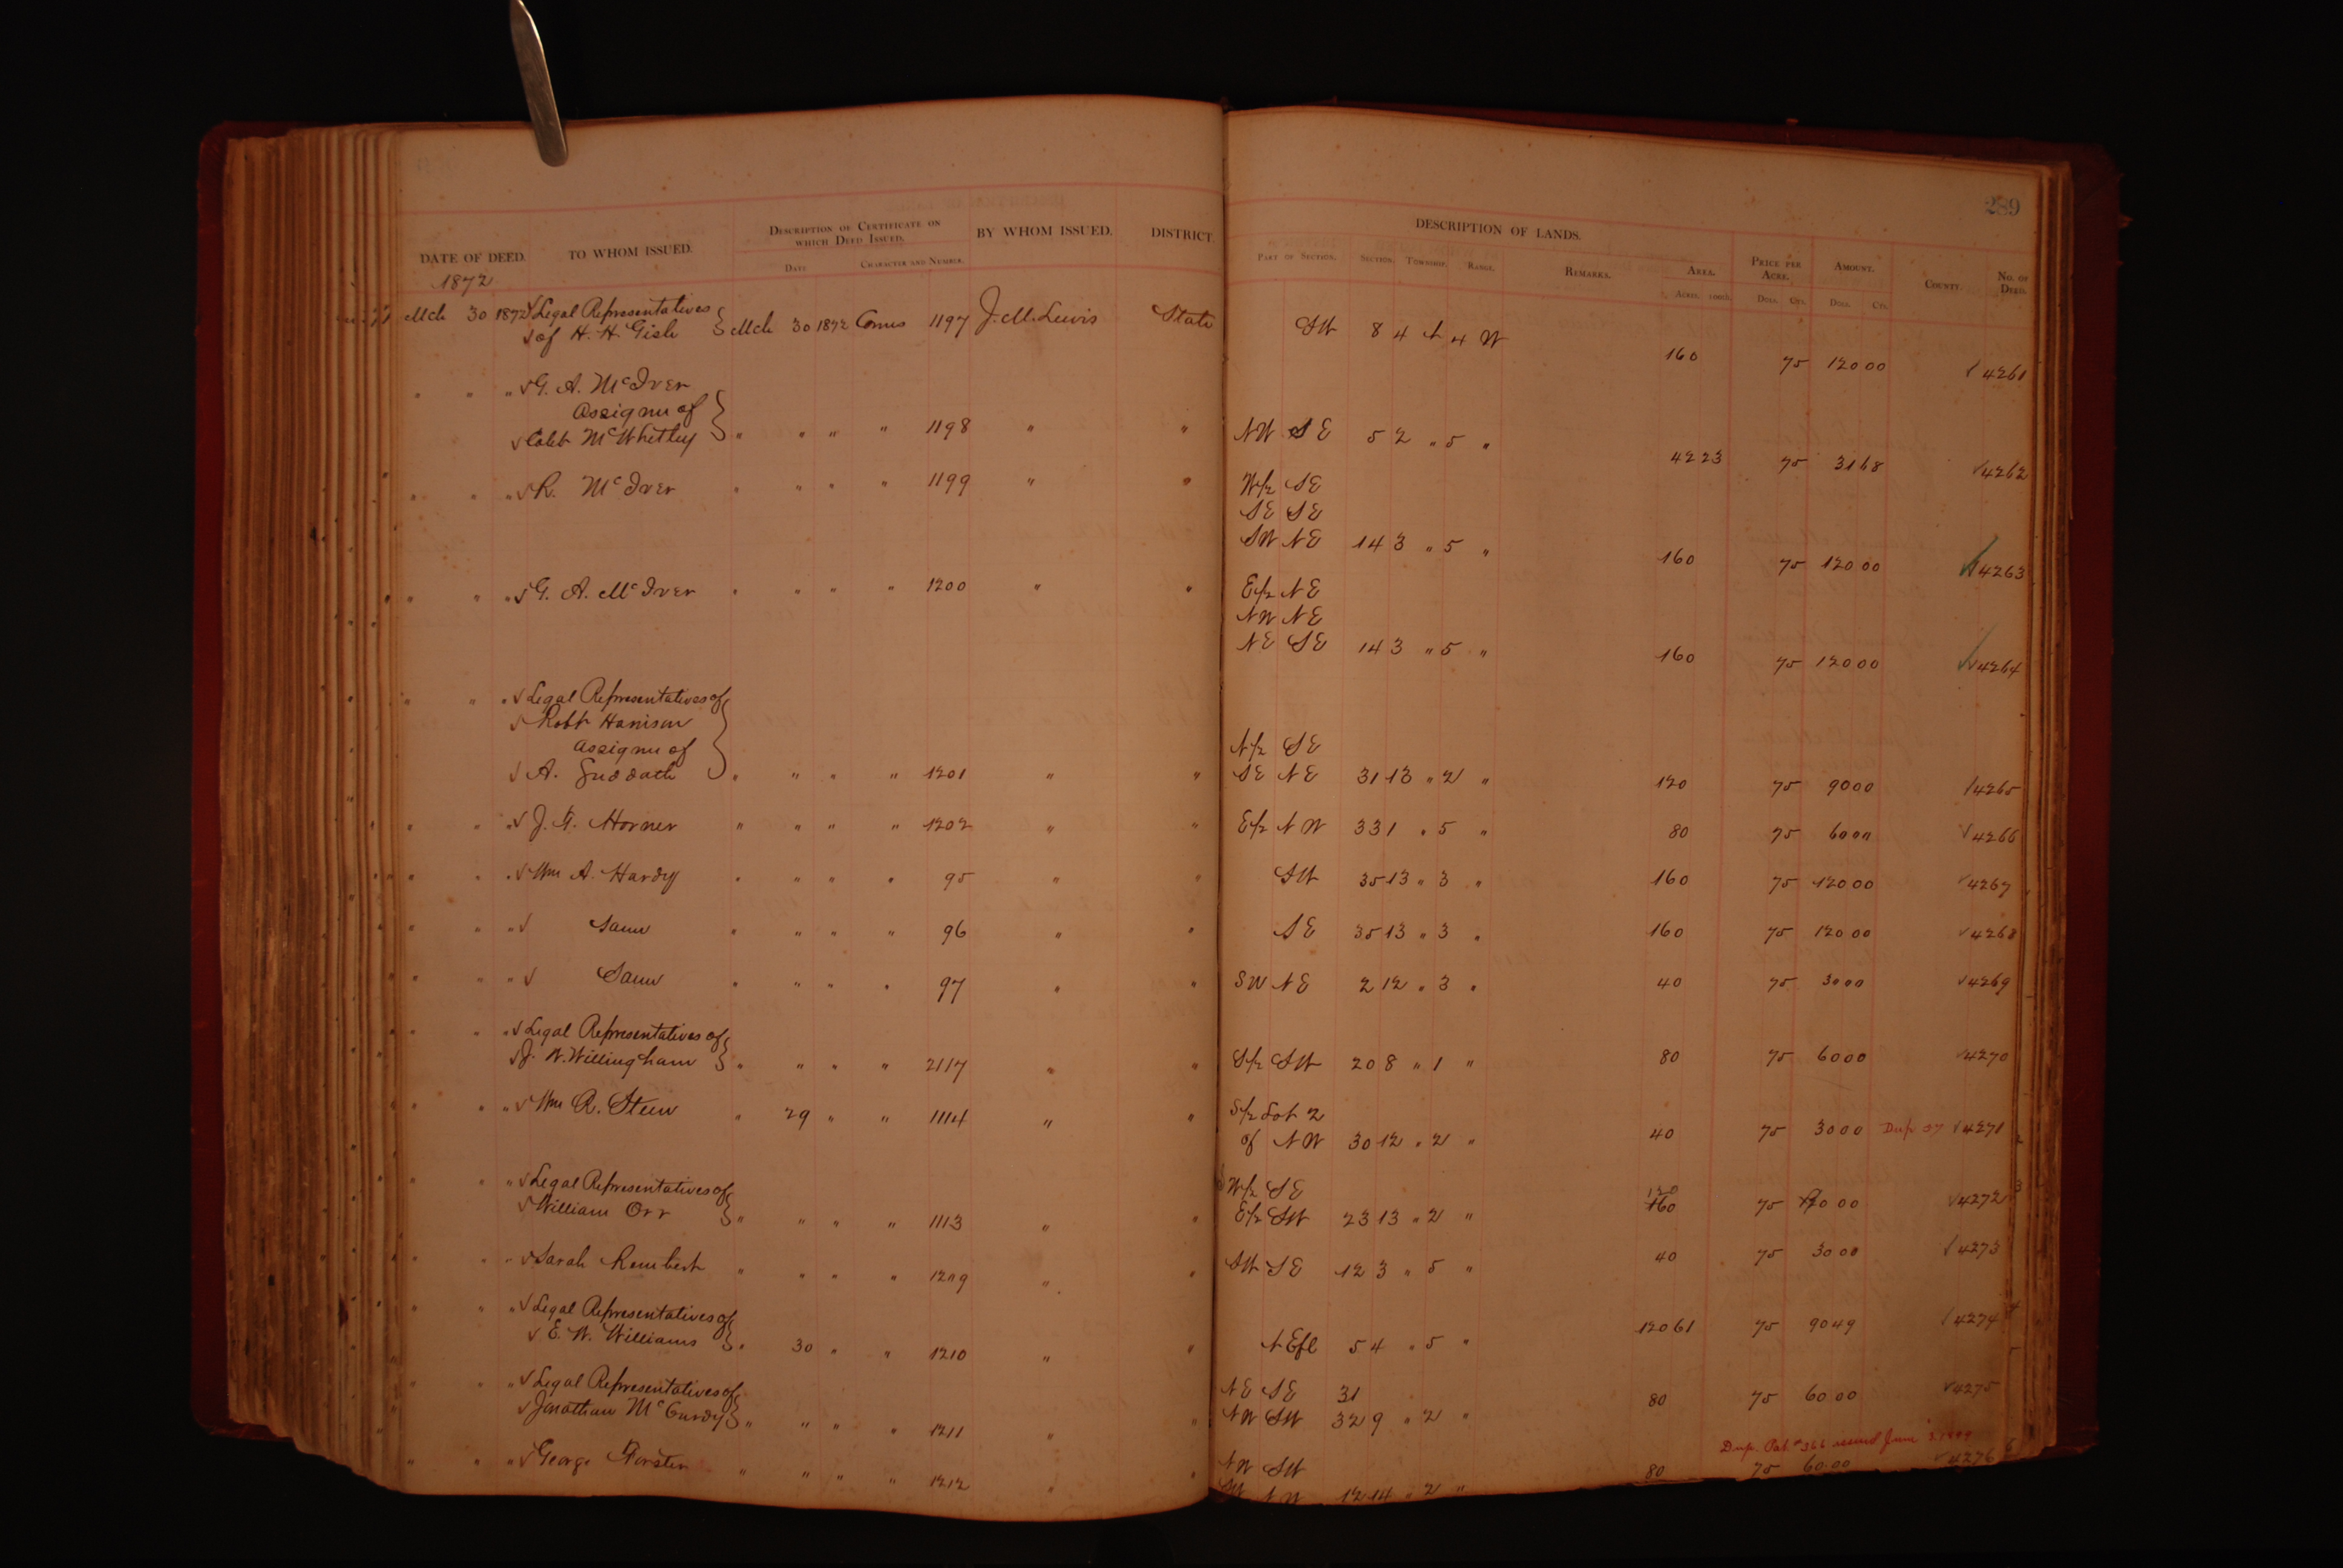 289
DATE OF DEED. TO WHOM ISSUED. DESCRIPTION OF CERTIFICATE ON WHICH DEED ISSUED. BY WHOM ISSUED. DISTRICT. DESCRIPTION OF LANDS. PRICE PER ACRE. AMOUNT. COUNTY. NO. OF DEED.
DATE CHARACTER AND NUMBER. PART OF SECTION. SECTION. TOWNSHIP. RANGE. REMARKS. AREA.
ACRES. 100DS. DOLL. CTS. DOLL. CTS.
1872
Mch 30 1872 √ Legal Representatives
√ of H. H. Gish } Mch 30 1872 1197 J. M. Lewis State SW 8 4 4 W 160 75 120 00 √ 4261
" " " √ G. A. McIver
Assignee of
√ Caleb McWhetley } " " " " 1198 " " NW SE 5 2 " 5 " 42 23 75 31 68 √ 4262
" " " √ R. McIver " " " " 1199 " " W/2 SE
SE SE
SW NE 14 3 " 5 " 160 75 120 00 √ 4263
" " " √ G. A. McIver " " " " 1200 " " E/2 NE
NW NE
NE SE 14 3 " 5 " 160 75 120 00 √√ 4264
" " " √ Legal Representatives of
√ Robt Harrison
Assignee of N/2 SE
√ A. Suddath } " " " " 1201 " " SE NE 31 13 " 2 " 120 75 90 00 √ 4265
" " " √ J. G. Horner " " " " 1202 " " E/2 NW 33 1 " 5 " 80 75 60 00 √ 4266
" " " √ Wm A. Hardy " " " " 95 " " SW 35 13 " 3 " 160 75 120 00 √ 4267
" " " √ Same " " " " 96 " " SE 35 13 " 3 " 160 75 120 00 √ 4268
" " " √ Same " " " " 97 " " SW NE 2 12 " 3 " 40 75 30 00 √ 4269
" " " √ Legal Representatives of
√ J. W. Willingham } " " " " 2117 " " S/2 SW 20 8 " 1 " 80 75 60 00 √ 4270
" " " √ Wm R. Stein " 29 " " 1114 " " S/2 Lot 2
of NW 30 12 " 2 " 40 75 30 00 Dup 37 √ 4271
" " " √ Legal Representatives of W/2 SE 120
√ William Orr } " " " " 1113 " " E/2 SW 23 13 " 2 " 160 75 00 √ 4272
" " √ Sarah Rembert " " " " 1209 " " SW SE 12 3 " 5 " 40 75 30 00 √ 4273
" " " √ Legal Representatives of
√ E. W. Williams } " 30 " " 1210 " " N Efl 5 4 " 5 " 120 61 75 90 49 √ 4274
" " " √ Legal Representatives of NE SE 31
√ Jonathan McCurdy } " " " " 1211 " " NW SW 32 9 " 2 " 80 75 60 00 √ 4275
Dup. Pat. #366 issued June
" " " √ George Forster " " " " 1212 " " NW SW
SW NW 12 14 " 2 " 80 75 60.00 √ 4276